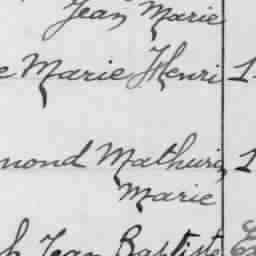 Jean Marie
e Marie Henri 1
mond Mathurin 1
Marie
h Jean Baptiste